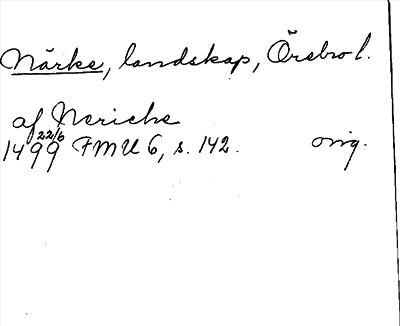 Närke, landskap, Örebro l.
af Nericke
1499 22/6 FMU 6, s. 142. orig.